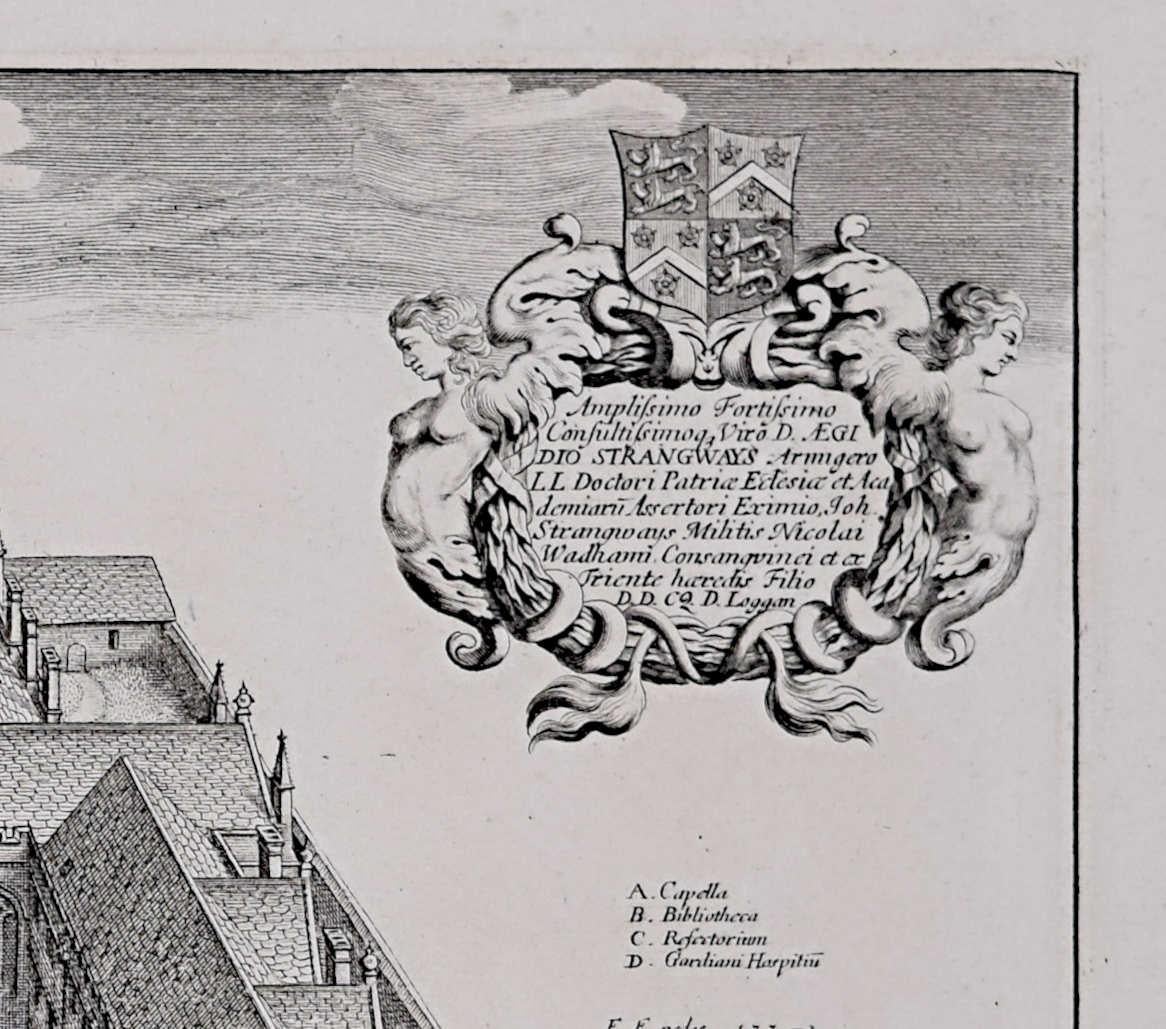 Amplissimo Fortissimo
Consultissimoq, Virō D. ÆGI
DIO STRANGWAYS Armigero
LL Doctori Patriæ Eclesiæ et Aca
demiarū Assertori Eximio, Joh.
Strangways Militis Nicolai
Wadhami Consangvinei et ex
Triente hæredis Filio
D.D. CQ D. Loggan
A. Capella
B. Bibliotheca
C. Refectorium
D. Gardiani Hospitiū